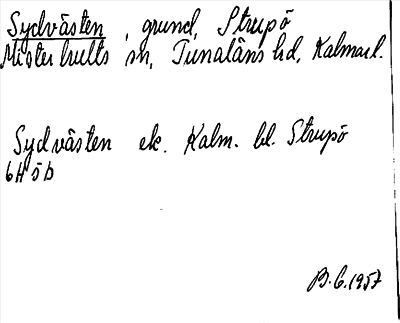 Sydvästen, grund, Strupö
Misterhults sn, Tunaläns hd, Kalmar l.
Sydvästen ek. Kalm. bl. Strupö
6H öb
B.G. 1957